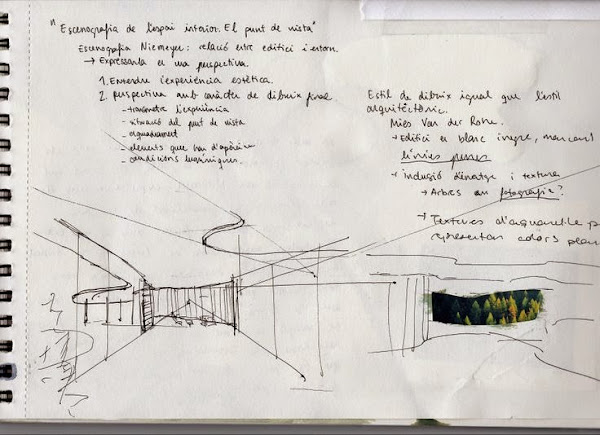 "Escenografia de l'espai interior. El punt de vista"
Escenografia Niemeyer: relació entre edifici i entorn.
→ Expressarla en una perspectiva.
1. Entendre l'experiència estètica.
2. perspectiva amb caràcter de dibuix final
- transmetre l'experiència
- situació del punt de vista
- enquadrament
- elements que han d'aparèixer
- condicions lumíniques.
Estil de dibuix igual que l'estil
arquitectònic.
Mies Van der Rohe.
→ Edifici en blanc i negre, marcant
línies
→ inclusió d'imatge i textura
→ Arbres en fotografia?
→ Textures d'aquarel·la p
representen colors plan